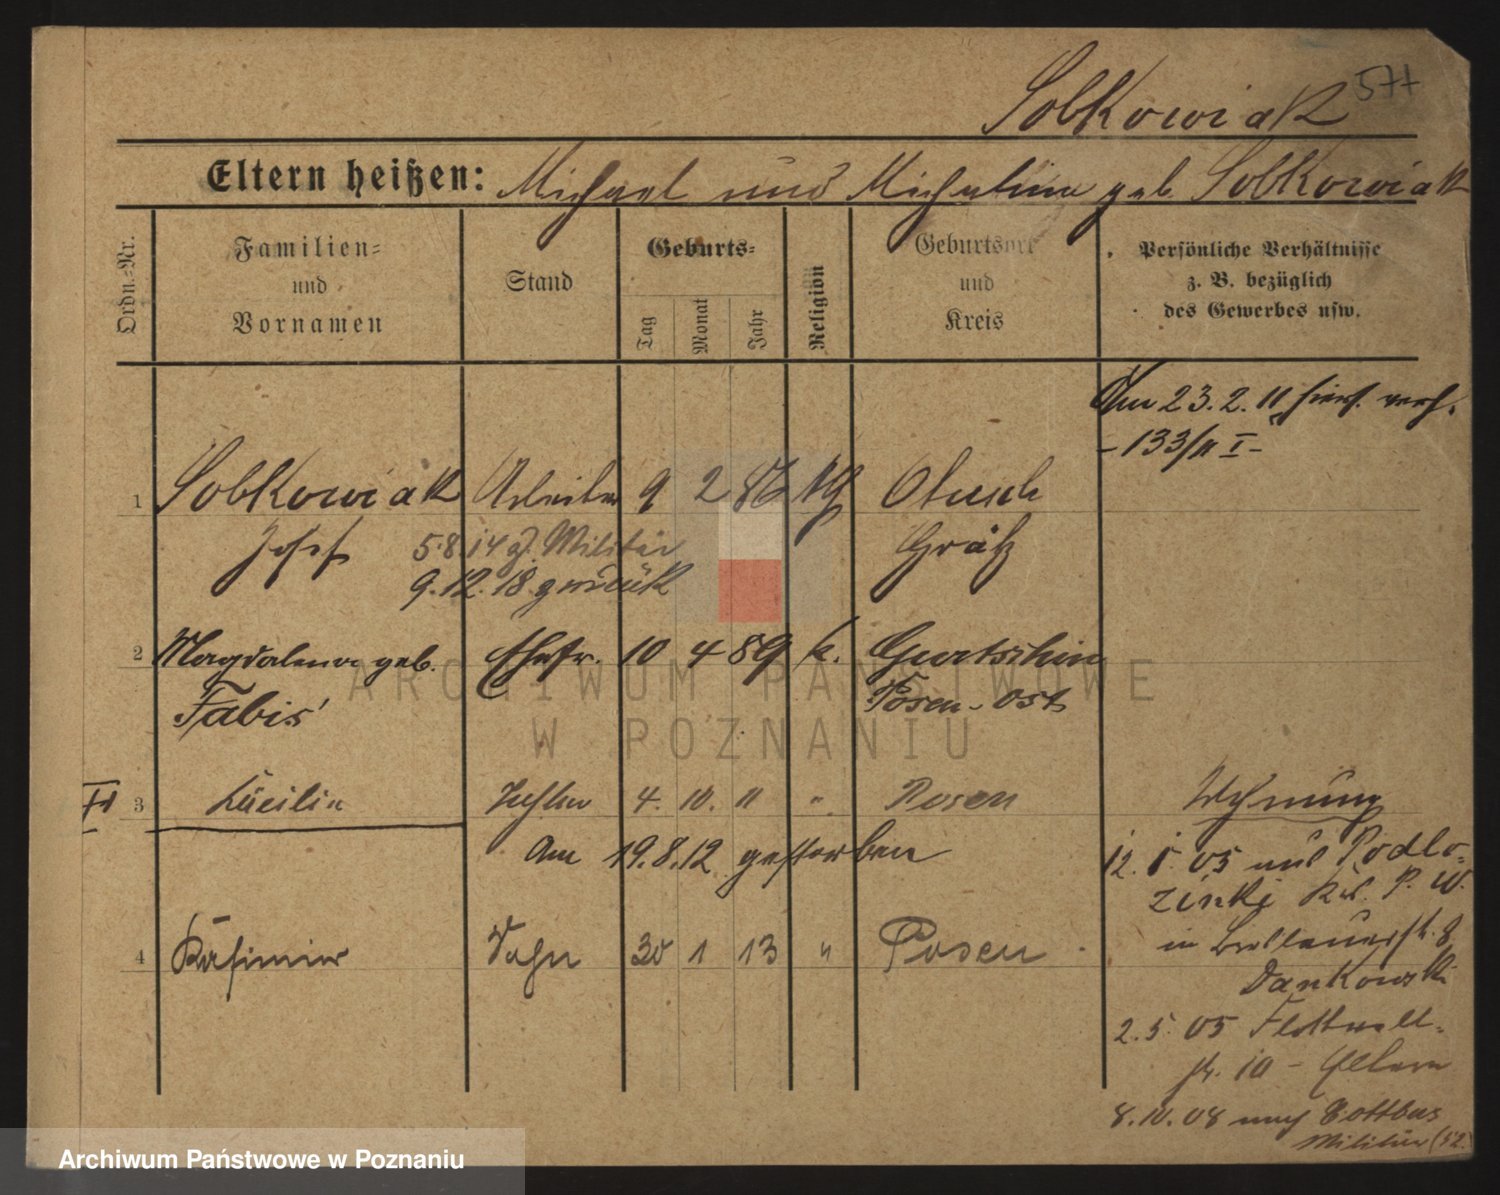 577
Sobkowiak
Eltern heißen: Michael und Michalina geb. Sobkowiak
Ordn.-Nr.
Familien-
und
Vornamen
Stand
Geburts-
Tag
Monat
Jahr
Religion
Geburtsort
und
Kreis
Persönliche Verhältnisse
z. B. bezüglich
des Gewerbes usw.
Am 23.2.11 hier verh.
- 133/11 I -
1 Sobkowiak Arbeiter 9 2 86 Otusch
Josef
Grätz
5.8.14 z. Militär
9.12.18 zurück
2 Magdalena geb. Ehefr. 10 4 89 k. Gurtschin
Fabiś Posen-Ost
3 Cäcilia Tochter 4. 10. 11 " Posen
Am 19.8.12 gestorben
4 Kasimir Sohn 30 1 13 " Posen
Wohnung
12. 1. 05 aus Podlo-
zinki Kr. P. W.
in 8
Dankowski
2.5.05 Flottwell-
str. 10 - Eltern
8.10.08 nach Cottbus
Militär (52.)
ARCHIWUM PAŃSTWOWE
W POZNANIU
Archiwum Państwowe w Poznaniu